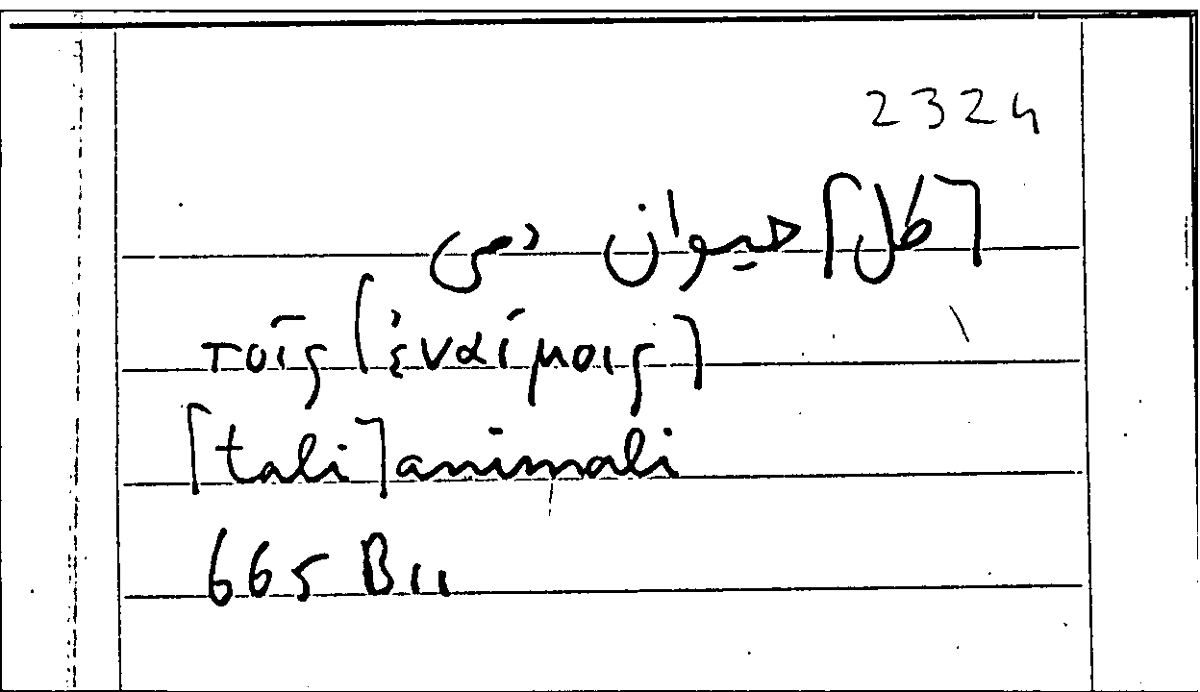 2324
⌈كل⌉ حيوان دمى
τοῖς ⌈ἐναίμοις⌉
⌈tali⌉ animali
665 B11